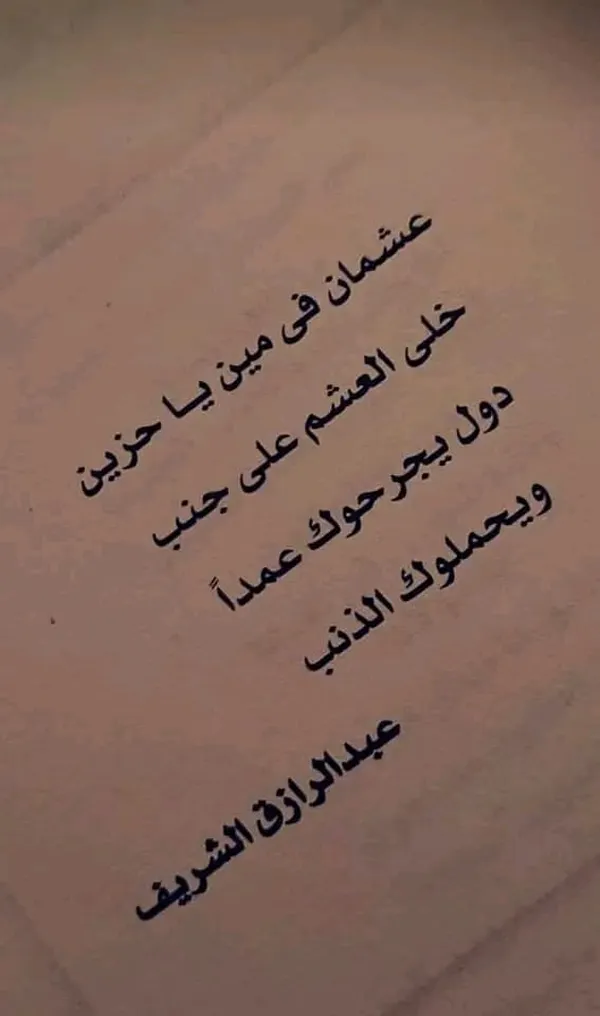 عشمان فى مين يا حزين
خلى العشم على جنب
دول يجرحوك عمداً
ويحملوك الذنب
عبدالرازق الشريف